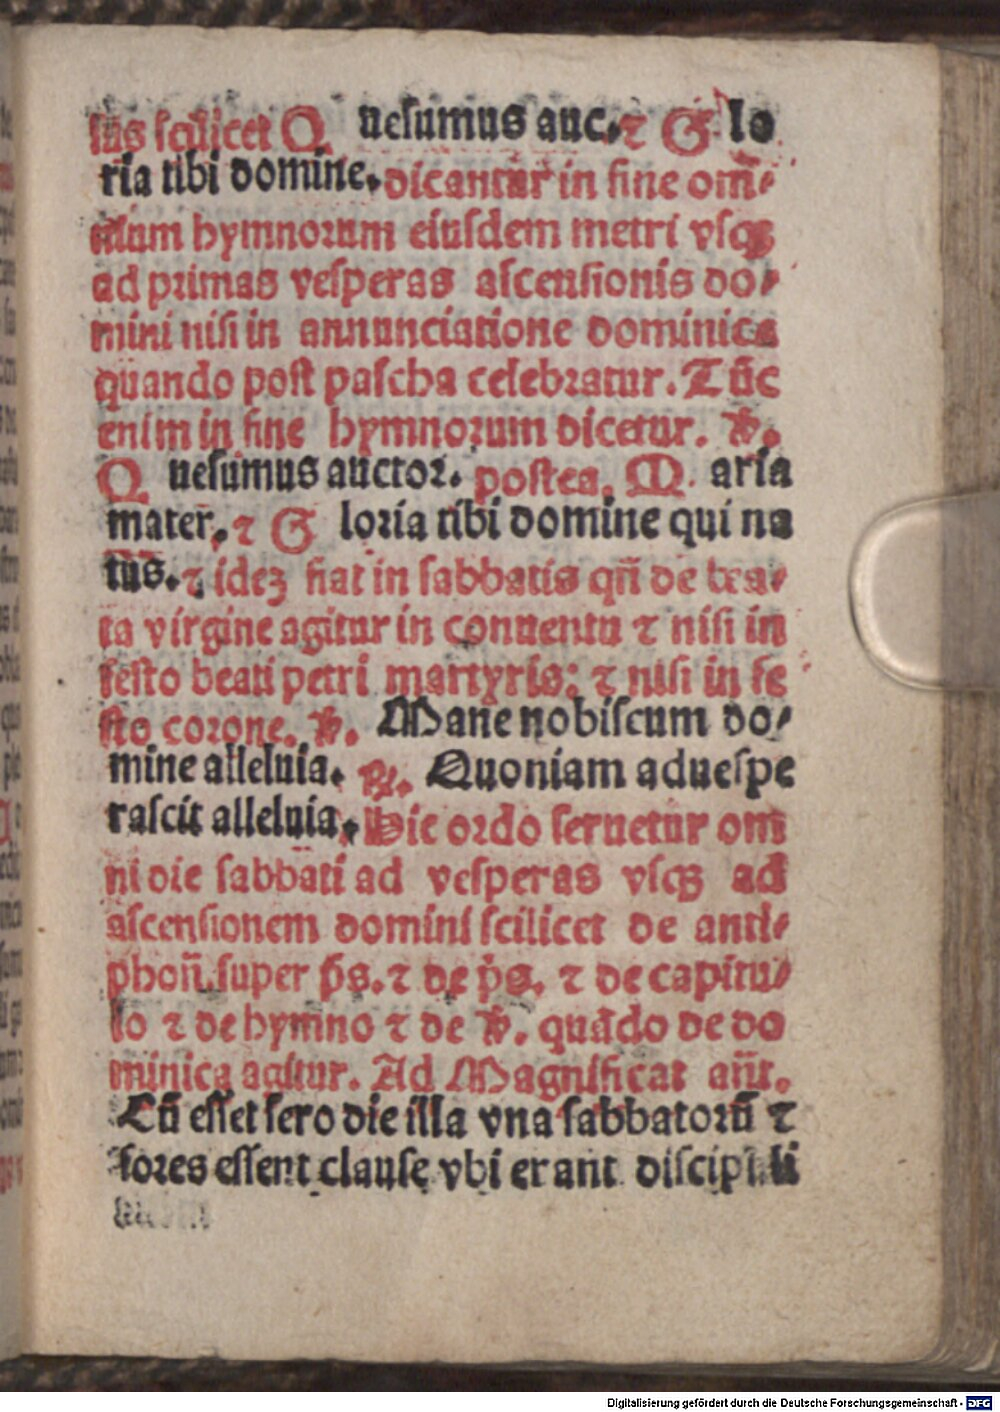 sus scilicet Q uesumus auc. ⁊ G lo
ria tibi domine. dicantur in fine om̄⸗
nium hymnorum eiusdem metri vsq̨
ad primas vesperas ascensionis do⸗
mini nisi in annunciatione dominica
quando post pascha celebratur. Tūc
enim in fine hymnorum dicetur. ℣.
Q uesumus auctor. postea. M aria
mater. ⁊ G loria tibi domine qui na
tus. ⁊ ideꝫ fiat in sabbatis qn̄ de bea⸗
ta virgine agitur in conuentu ⁊ nisi in
festo beati petri martyris: ⁊ nisi in fe
sto corone. ℣. Mane nobiscum do⸗
mine alleluia. ℟. Quoniam aduespe
rascit alleluia. Hic ordo seruetur om
ni die sabbati ad vesperas vsqꝫ ad
ascensionem domini scilicet de anti⸗
phon̄. super p̄s. ⁊ de p̄s. ⁊ de capitu⸗
lo ⁊ de hymno ⁊ de ℣. quādo de do
minica agitur. Ad Magnificat an̄t.
Cū esset sero die illa vna sabbatorū ⁊
fores essent clause vbi erant discipuli